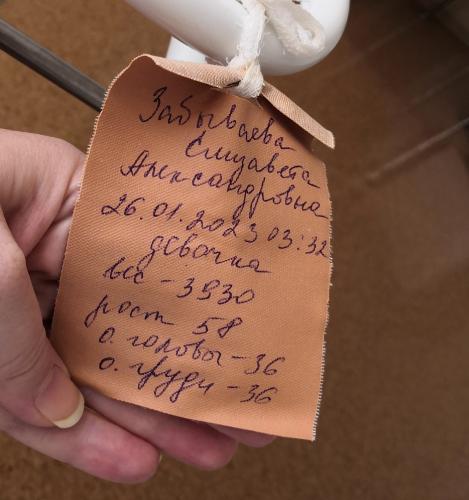 Забываева
Елизавета
Александровна
26.01.2023 03:32
девочка
вес - 3930
рост 58
о. головы - 36
о. груди - 36